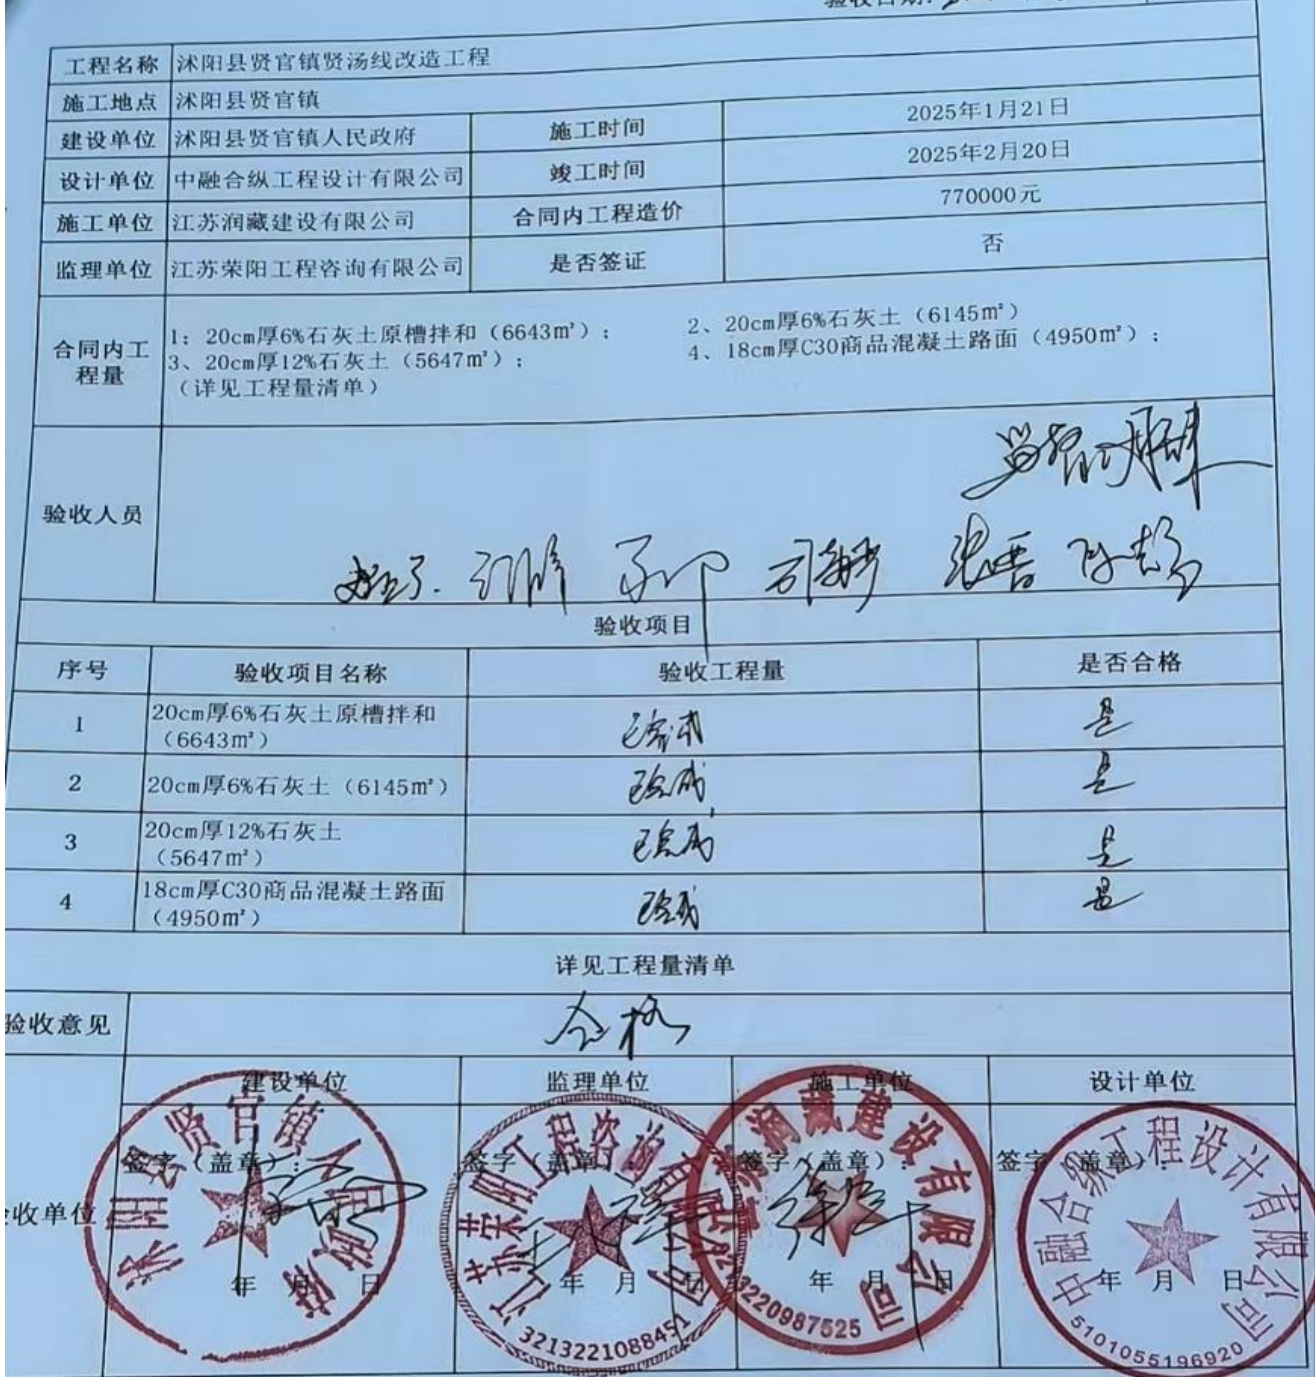 验收日期:
工程名称 沭阳县贤官镇贤汤线改造工程
施工地点 沭阳县贤官镇
建设单位 沭阳县贤官镇人民政府 施工时间 2025年1月21日
设计单位 中融合纵工程设计有限公司 竣工时间 2025年2月20日
施工单位 江苏润藏建设有限公司 合同内工程造价 770000元
监理单位 江苏荣阳工程咨询有限公司 是否签证 否
合同内工程量
1：20cm厚6%石灰土原槽拌和（6643㎡）； 2、20cm厚6%石灰土（6145㎡）
3、20cm厚12%石灰土（5647㎡）； 4、18cm厚C30商品混凝土路面（4950㎡）；
（详见工程量清单）
验收人员
验收项目
序号 验收项目名称 验收工程量 是否合格
1 20cm厚6%石灰土原槽拌和（6643㎡） 已完成 是
2 20cm厚6%石灰土（6145㎡） 已完成 是
3 20cm厚12%石灰土（5647㎡） 已完成 是
4 18cm厚C30商品混凝土路面（4950㎡） 已完成 是
详见工程量清单
验收意见 合格
建设单位 监理单位 施工单位 设计单位
签字（盖章）： 签字（盖章） 签字（盖章）： 签字（盖章）：
验收单位
年 月 日 年 月 日 年 月 日 年 月 日
沭阳县贤官镇人民政府
江苏荣阳工程咨询有限公司
3213221088451
江苏润藏建设有限公司
3220987525
中融合纵工程设计有限公司
5101055196920